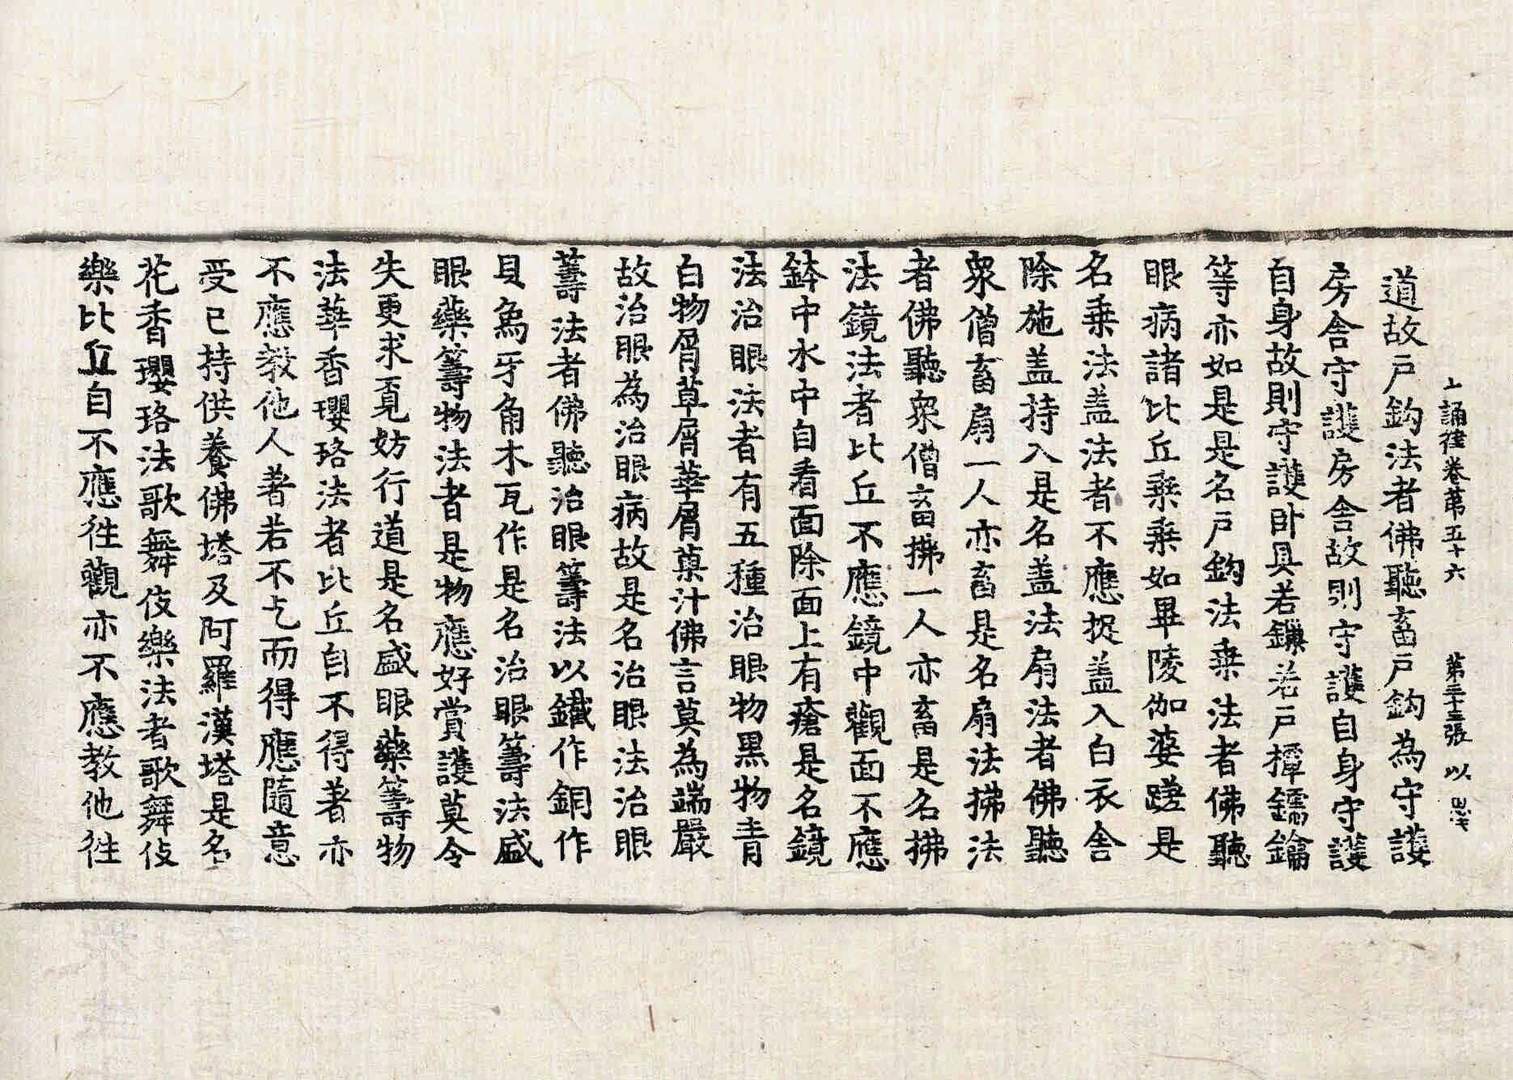 十誦律卷第五十六　第三十三張　以　恩
道故戶鈎法者佛聽畜戶鈎為守護
房舍守護房舍故則守護自身守護
自身故則守護卧具若鏁若戶㯓鑐鑰
等亦如是是名戶鈎法乗法者佛聽
眼病諸比丘乗乗如畢陵伽婆蹉是
名乗法盖法者不應捉盖入白衣舍
除施盖持入是名盖法扇法者佛聽
衆僧畜扇一人亦畜是名扇法拂法
者佛聽衆僧畜拂一人亦畜是名拂
法鏡法者比丘不應鏡中觀面不應
鉢中水中自看面除面上有瘡是名鏡
法治眼法者有五種治眼物黒物青
白物屑草屑華屑菓汁佛言莫為端嚴
故治眼為治眼病故是名治眼法治眼
籌法者佛聽治眼籌法以鐵作銅作
貝為牙角木瓦作是名治眼籌法盛
眼藥籌物法者是物應好賞護莫令
失更求覓妨行道是名盛眼藥籌物
法華香瓔珞法者比丘自不得著亦
不應教他人著若不乞而得應隨意
受已持供養佛塔及阿羅漢塔是名
花香瓔珞法歌舞伎樂法者歌舞伎
樂比丘自不應徃觀亦不應教他徃